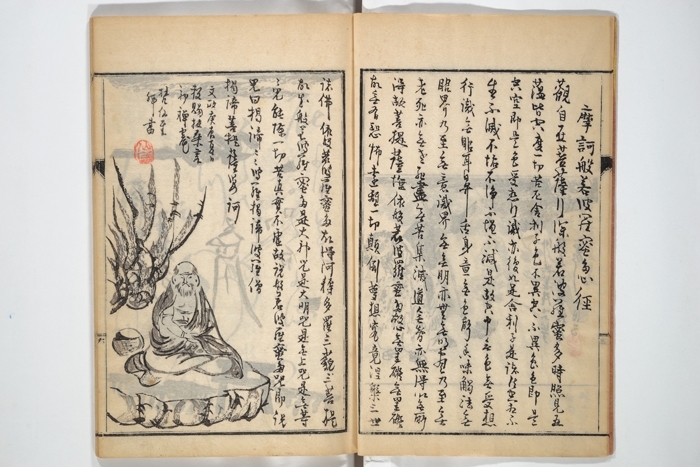 摩訶般若波羅蜜多心経
観自在菩薩行深般若波羅蜜多時照見五
蘊皆空度一切苦厄舎利子色不異空空不異色色即是
空空即是色受想行識亦復如是舎利子是諸法空相不
生不滅不垢不浄不増不減是故空中無色無受想
行識無眼耳鼻舌身意無色声香味触法無
眼界乃至無意識界無無明亦無無明尽乃至無
老死亦無老死尽無苦集滅道無智亦無得以無所
得故菩提薩埵依般若波羅蜜多故心無罣礙無罣礙
故無有恐怖遠離一切顛倒夢想究竟涅槃三世
諸仏依般若波羅蜜多故得阿耨多羅三藐三菩提
故知般若波羅蜜多是大神呪是大明呪是無上呪是無等
等呪能除一切苦真実不虚故説般若波羅蜜多呪即説
呪曰掲諦掲諦波羅掲諦波羅僧
掲諦菩提薩婆訶
文政庚辰